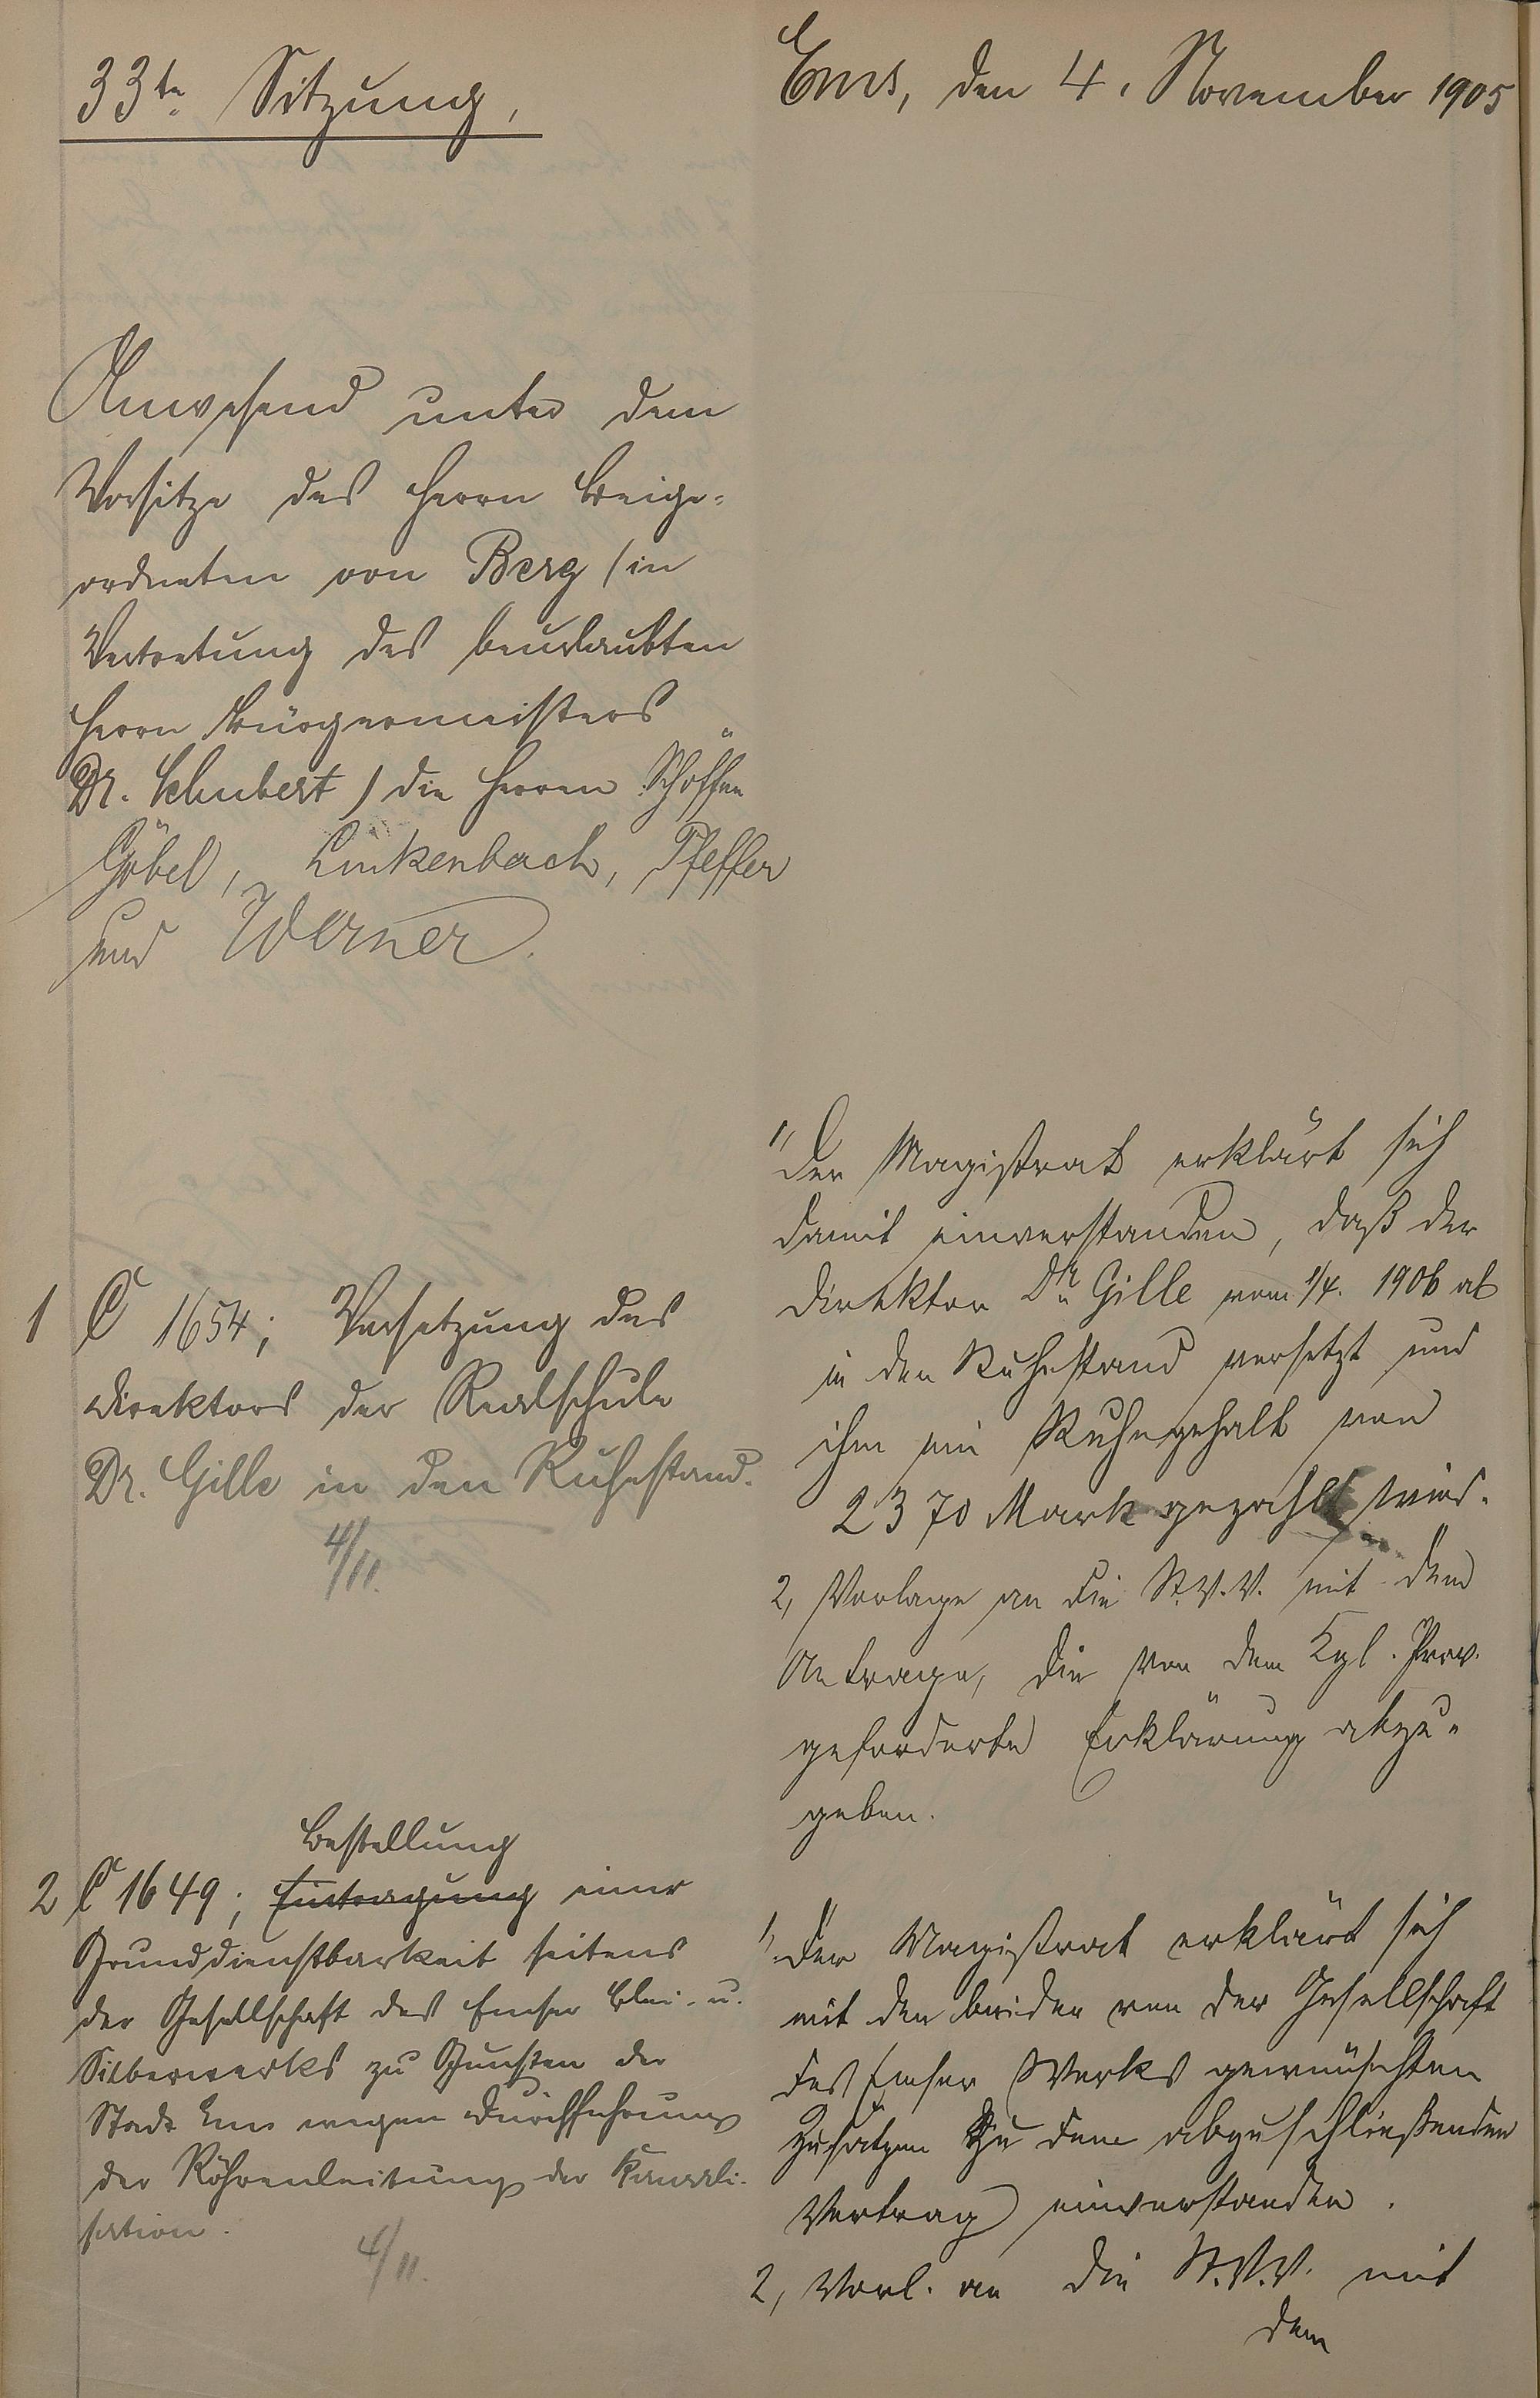 33te Sitzung.
Ems, den 4. November 1905
Anwesend unter dem
Vorsitze des Herrn Beige-
ordneten von Berg (in
Vertretung des beurlaubten
Herrn Bürgermeisters
Dr. Schubert) die Herren Schöffen
Göbel, Linkenbach, Pfeffer
und Werner.
1 C 1654; Versetzung des
Direktors der Realschule
Dr. Gille in den Ruhestand.
4/11.
1, Der Magistrat erklärt sich
damit einverstanden, daß der
Direktor Dr. Gille vom 1/4. 1906 ab
in den Ruhestand versetzt und
ihm ein Ruhegehalt von
2370 Mark gezahlt wird.
2, Vorlage an die St.V.V. mit dem
Antrage, die von dem Kgl. Prov.
geforderte Erklärung abzu-
geben.
Bestellung
2 C 1649; Eintragung einer
Grunddienstbarkeit seitens
der Gesellschaft des Emser Blei- u.
Silberwerks zu Gunsten der
Stadt Ems wegen Durchführung
der Röhrenleitung der Kanali-
sation.
4/11.
1, Der Magistrat erklärt sich
mit den beiden von der Gesellschaft
des Emser Werks gewünschten
Zusätzen zu dem abzuschließenden
Vertrag einverstanden.
2, Vorl. an die St.V.V. mit
dem